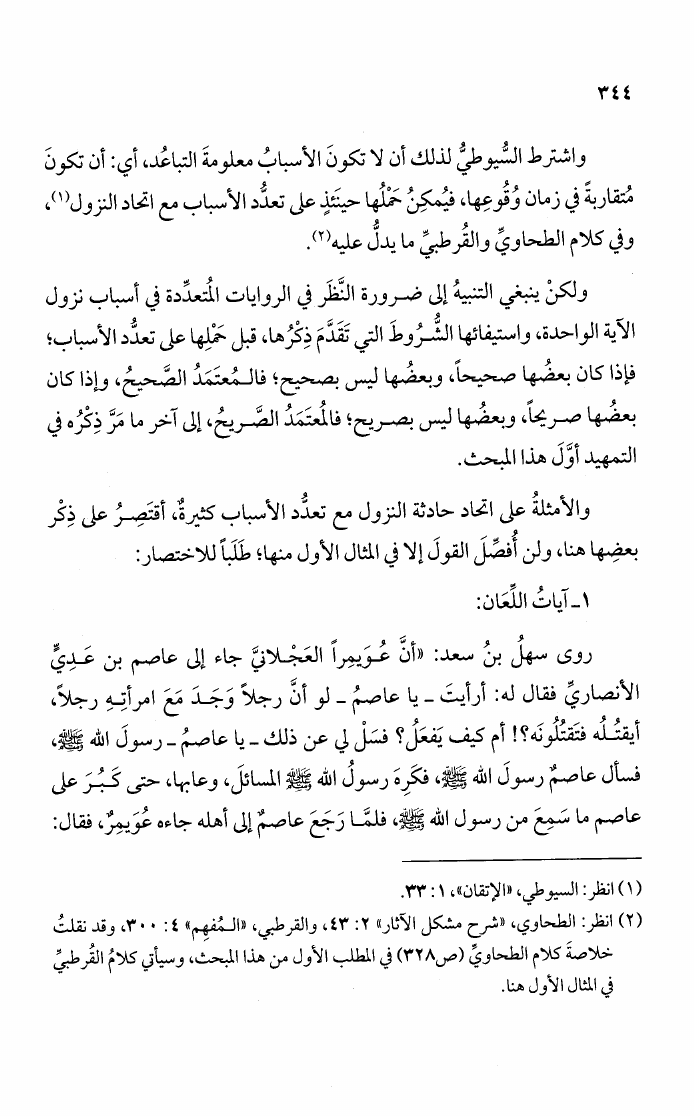 ٣٤٤
واشترط السُّيوطيُّ لذلك أن لا تكونَ الأسبابُ معلومةَ التباعُد، أي: أن تكونَ
مُتقاربةً في زمان وُقُوعِها، فيُمكِنُ حَمْلُها حينَئذٍ على تعدُّد الأسباب مع اتحاد النزول(١)،
وفي كلام الطحاويِّ والقُرطبيِّ ما يدلُّ عليه(٢).
ولكنْ ينبغي التنبيهُ إلى ضرورة النَّظَر في الروايات المُتعدِّدة في أسباب نزول
الآية الواحدة، واستيفائها الشُّرُوطَ التي تَقَدَّمَ ذِكْرُها، قبل حَمْلِها على تعدُّد الأسباب؛
فإذا كان بعضُها صحيحاً، وبعضُها ليس بصحيح؛ فالمُعتَمَدُ الصَّحيحُ، وإذا كان
بعضُها صريحاً، وبعضُها ليس بصريح؛ فالمُعتَمَدُ الصَّريحُ، إلى آخر ما مَرَّ ذِكْرُه في
التمهيد أوَّلَ هذا المبحث.
والأمثلةُ على اتحاد حادثة النزول مع تعدُّد الأسباب كثيرةٌ، أقتَصِرُ على ذِكْر
بعضِها هنا، ولن أُفصِّلَ القولَ إلا في المثال الأول منها؛ طَلَباً للاختصار:
١ـ آياتُ اللِّعَان:
روى سهلُ بنُ سعد: «أنَّ عُوَيمِراً العَجْلانيَّ جاء إلى عاصم بن عَدِيٍّ
الأنصاريِّ فقال له: أرأيتَ ـ يا عاصمُ ـ لو أنَّ رجلاً وَجَدَ مَعَ امرأتِهِ رجلاً،
أيقتُلُه فتَقتُلُونَه؟! أم كيف يَفعَلُ؟ فسَلْ لي عن ذلك ـ يا عاصمُ ـ رسولَ الله ﷺ،
فسأل عاصمٌ رسولَ الله ﷺ، فكَرِهَ رسولُ الله ﷺ المسائلَ، وعابها، حتى كَبُرَ على
عاصم ما سَمِعَ من رسول الله ﷺ، فلمَّا رَجَعَ عاصمٌ إلى أهله جاءه عُوَيمِرٌ، فقال:
(١) انظر: السيوطي، «الإتقان»، ١: ٣٣.
(٢) انظر: الطحاوي، «شرح مشكل الآثار» ٢: ٤٣، والقرطبي، «المُفهِم» ٤: ٣٠٠، وقد نقلتُ
خلاصةَ كلام الطحاويِّ (ص٣٢٨) في المطلب الأول من هذا المبحث، وسيأتي كلامُ القُرطبيِّ
في المثال الأول هنا.